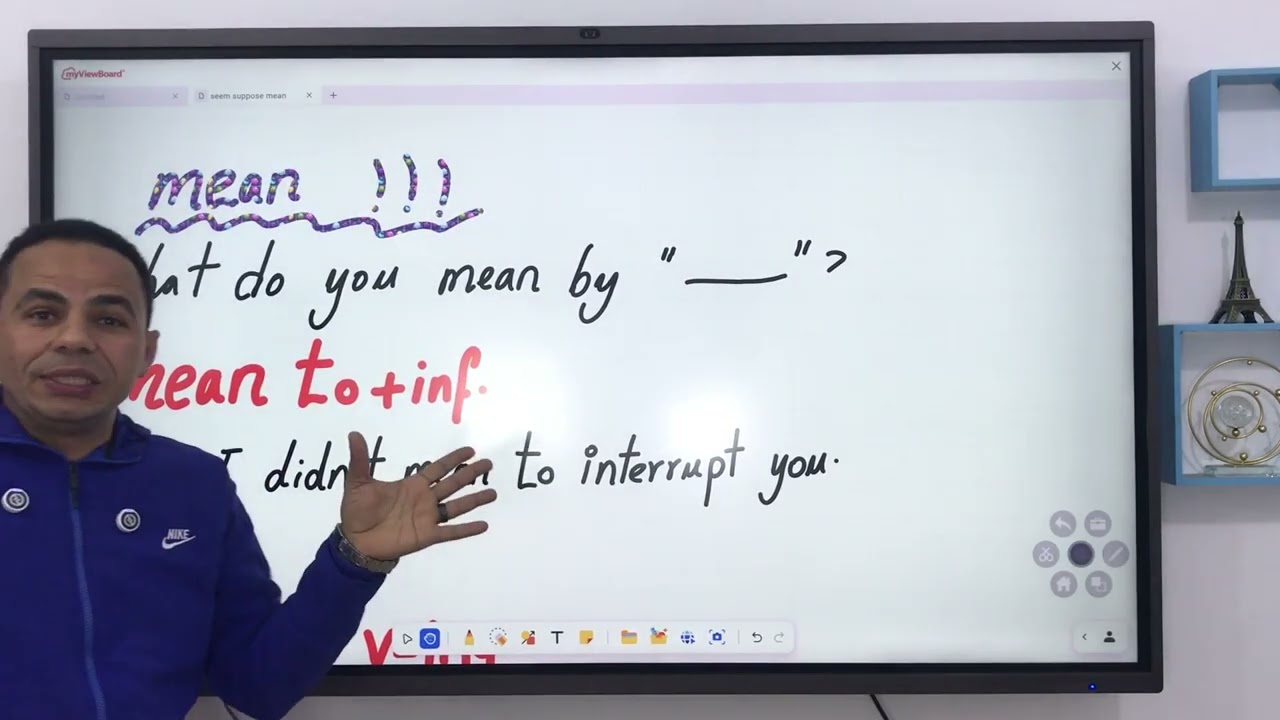 myViewBoard
seem suppose mean
mean !!!
hat do you mean by "___" ?
mean to + inf.
I didn't mean to interrupt you.
NIKE
V-ing